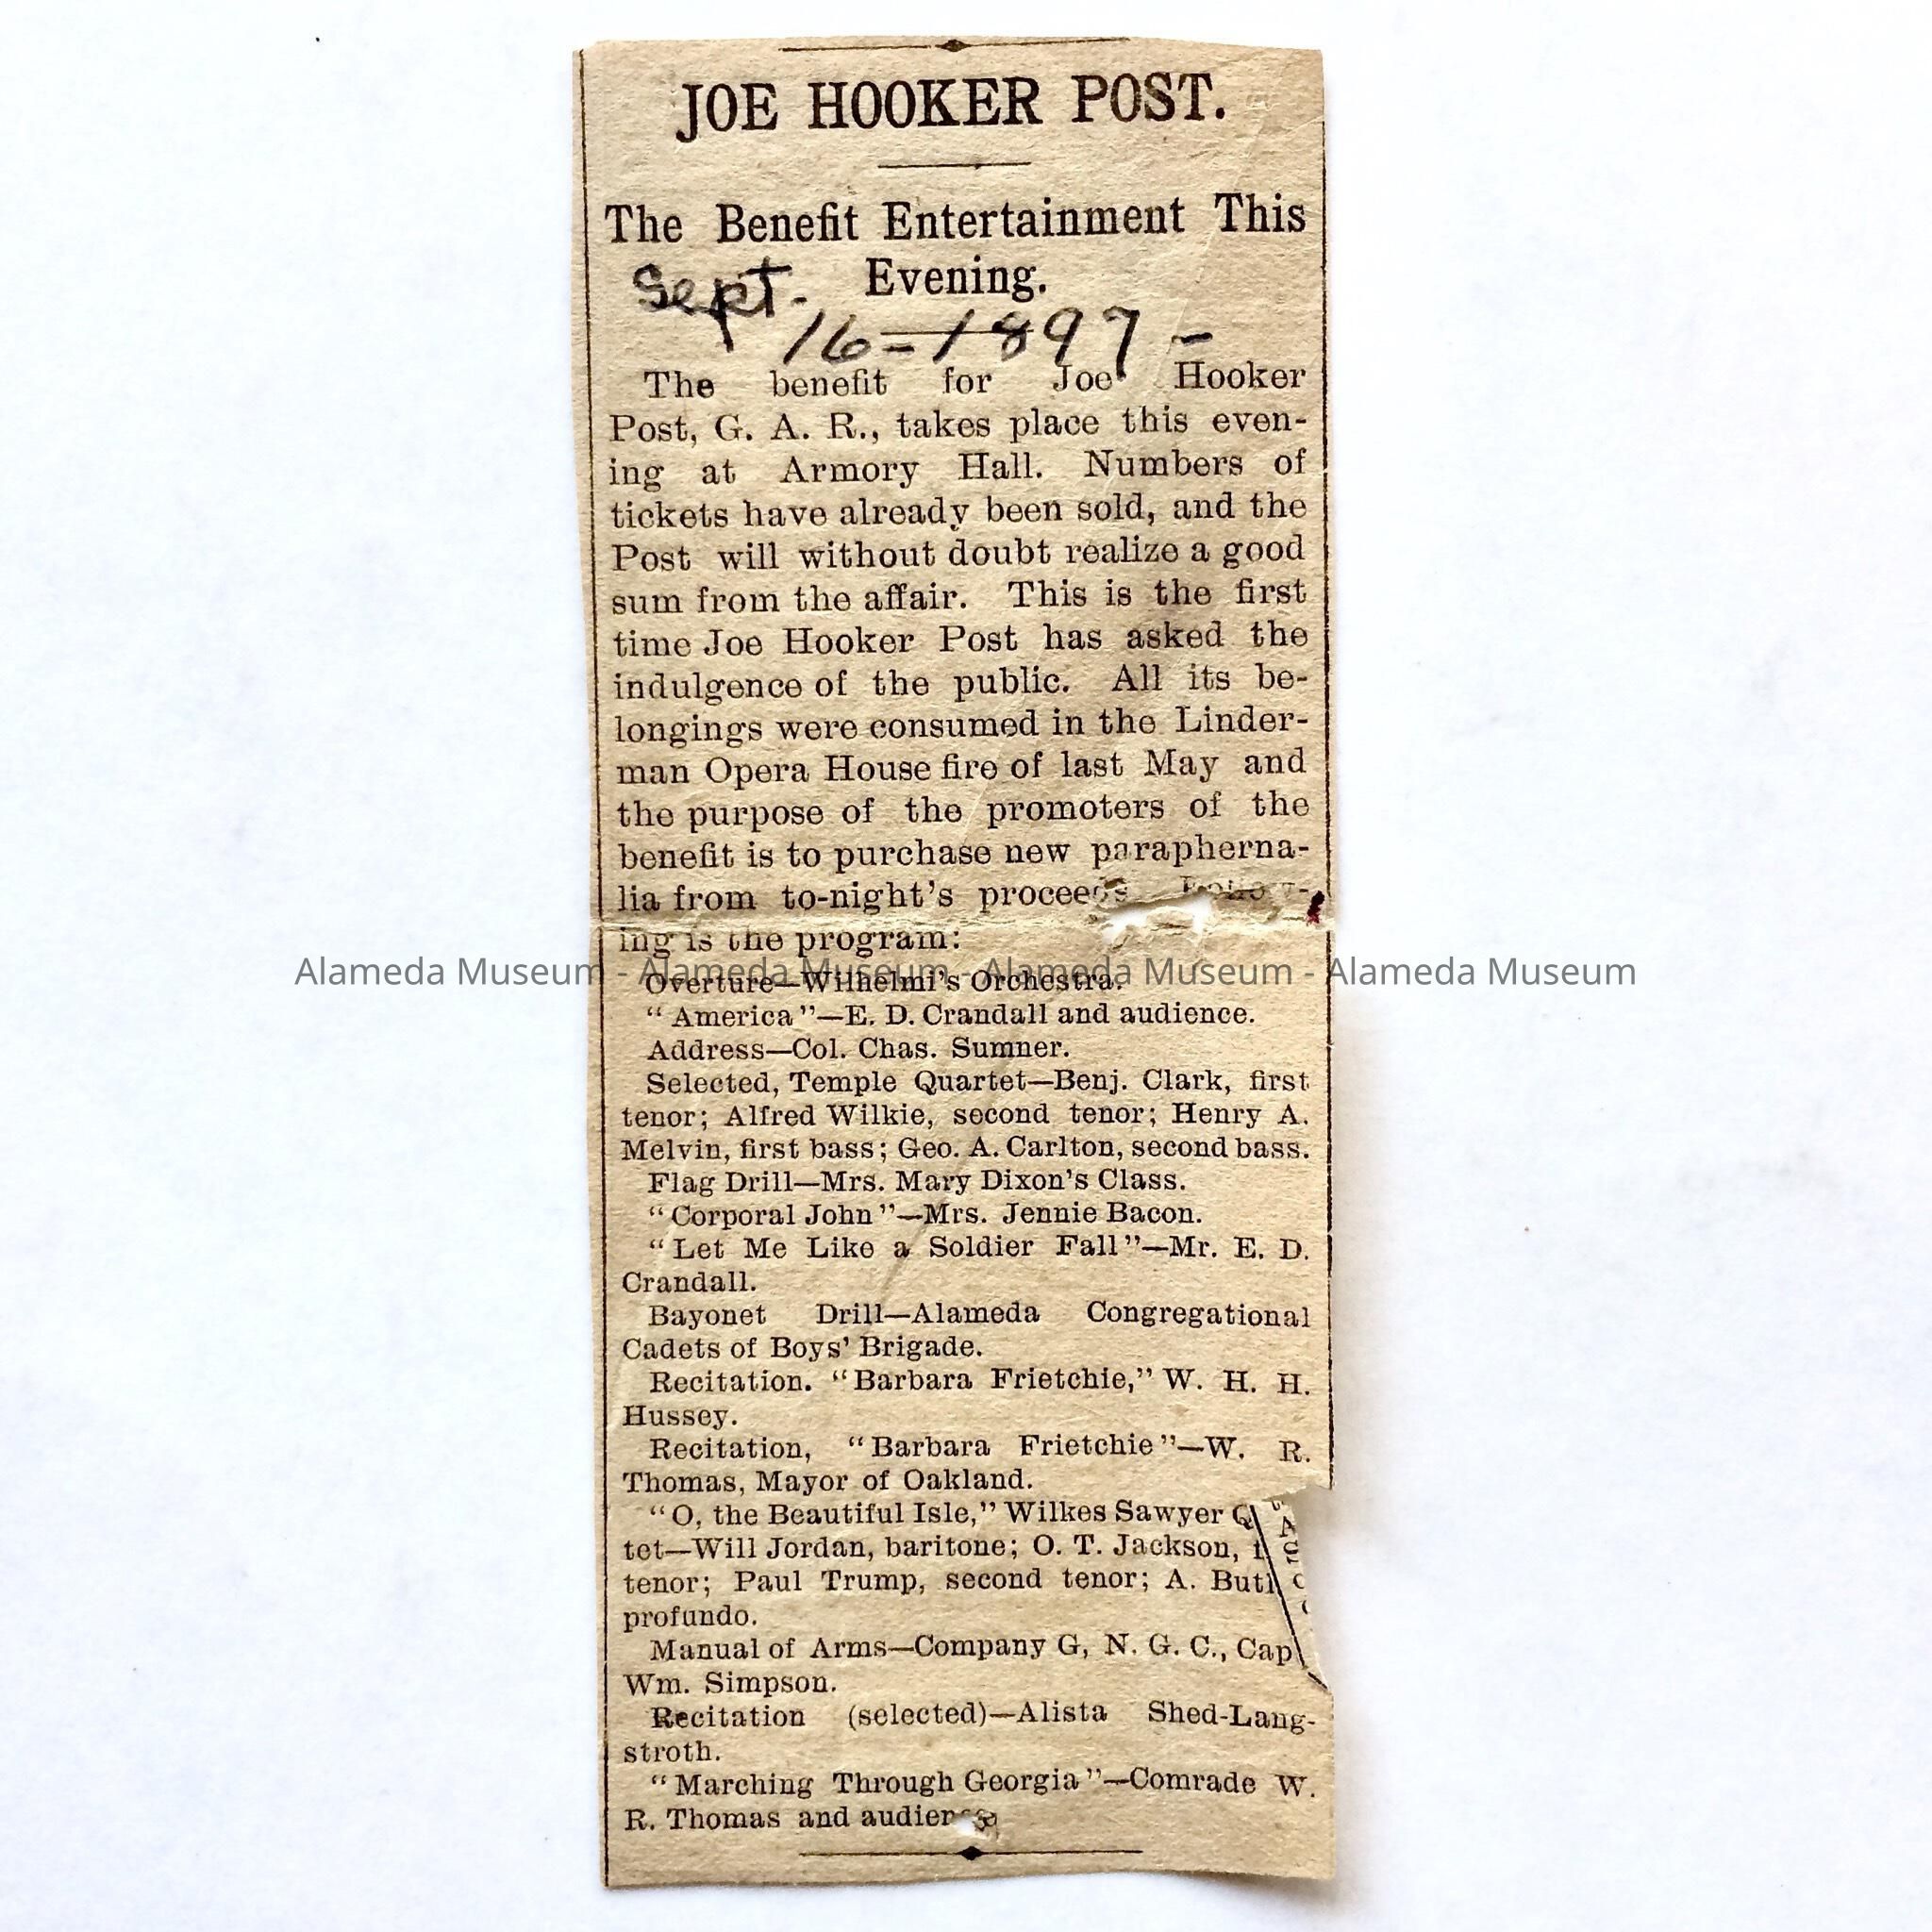 JOE HOOKER POST.
The Benefit Entertainment This
Evening.
Sept.
16-1897-
The benefit for Joe Hooker
Post, G. A. R., takes place this even-
ing at Armory Hall. Numbers of
tickets have already been sold, and the
Post will without doubt realize a good
sum from the affair. This is the first
time Joe Hooker Post has asked the
indulgence of the public. All its be-
longings were consumed in the Linder-
man Opera House fire of last May and
the purpose of the promoters of the
benefit is to purchase new parapherna-
lia from to-night's proceeds. Follow-
ing is the program:
Alameda Museum - Alameda Museum - Alameda Museum - Alameda Museum
Overture—Wilhelmi's Orchestra.
"America"—E. D. Crandall and audience.
Address—Col. Chas. Sumner.
Selected, Temple Quartet—Benj. Clark, first
tenor; Alfred Wilkie, second tenor; Henry A.
Melvin, first bass; Geo. A. Carlton, second bass.
Flag Drill—Mrs. Mary Dixon's Class.
"Corporal John"—Mrs. Jennie Bacon.
"Let Me Like a Soldier Fall"—Mr. E. D.
Crandall.
Bayonet Drill—Alameda Congregational
Cadets of Boys' Brigade.
Recitation. "Barbara Frietchie," W. H. H.
Hussey.
Recitation, "Barbara Frietchie"—W. R.
Thomas, Mayor of Oakland.
"O, the Beautiful Isle," Wilkes Sawyer Q
tet—Will Jordan, baritone; O. T. Jackson,
tenor; Paul Trump, second tenor; A. But
profundo.
Manual of Arms—Company G, N. G. C., Cap
Wm. Simpson.
Recitation (selected)—Alista Shed-Lang-
stroth.
"Marching Through Georgia"—Comrade W.
R. Thomas and audience